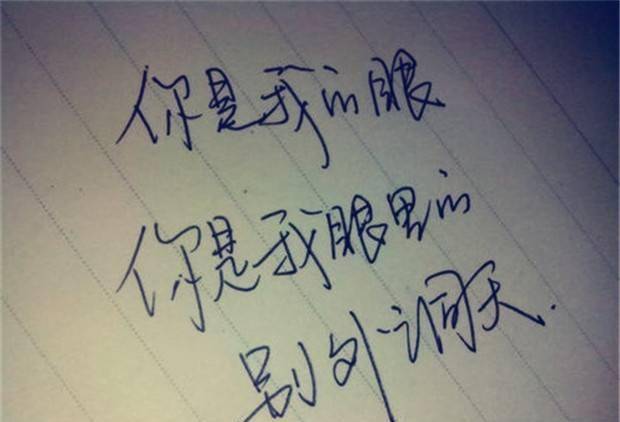 你是我的眼
你是我眼里的
别外洞天.